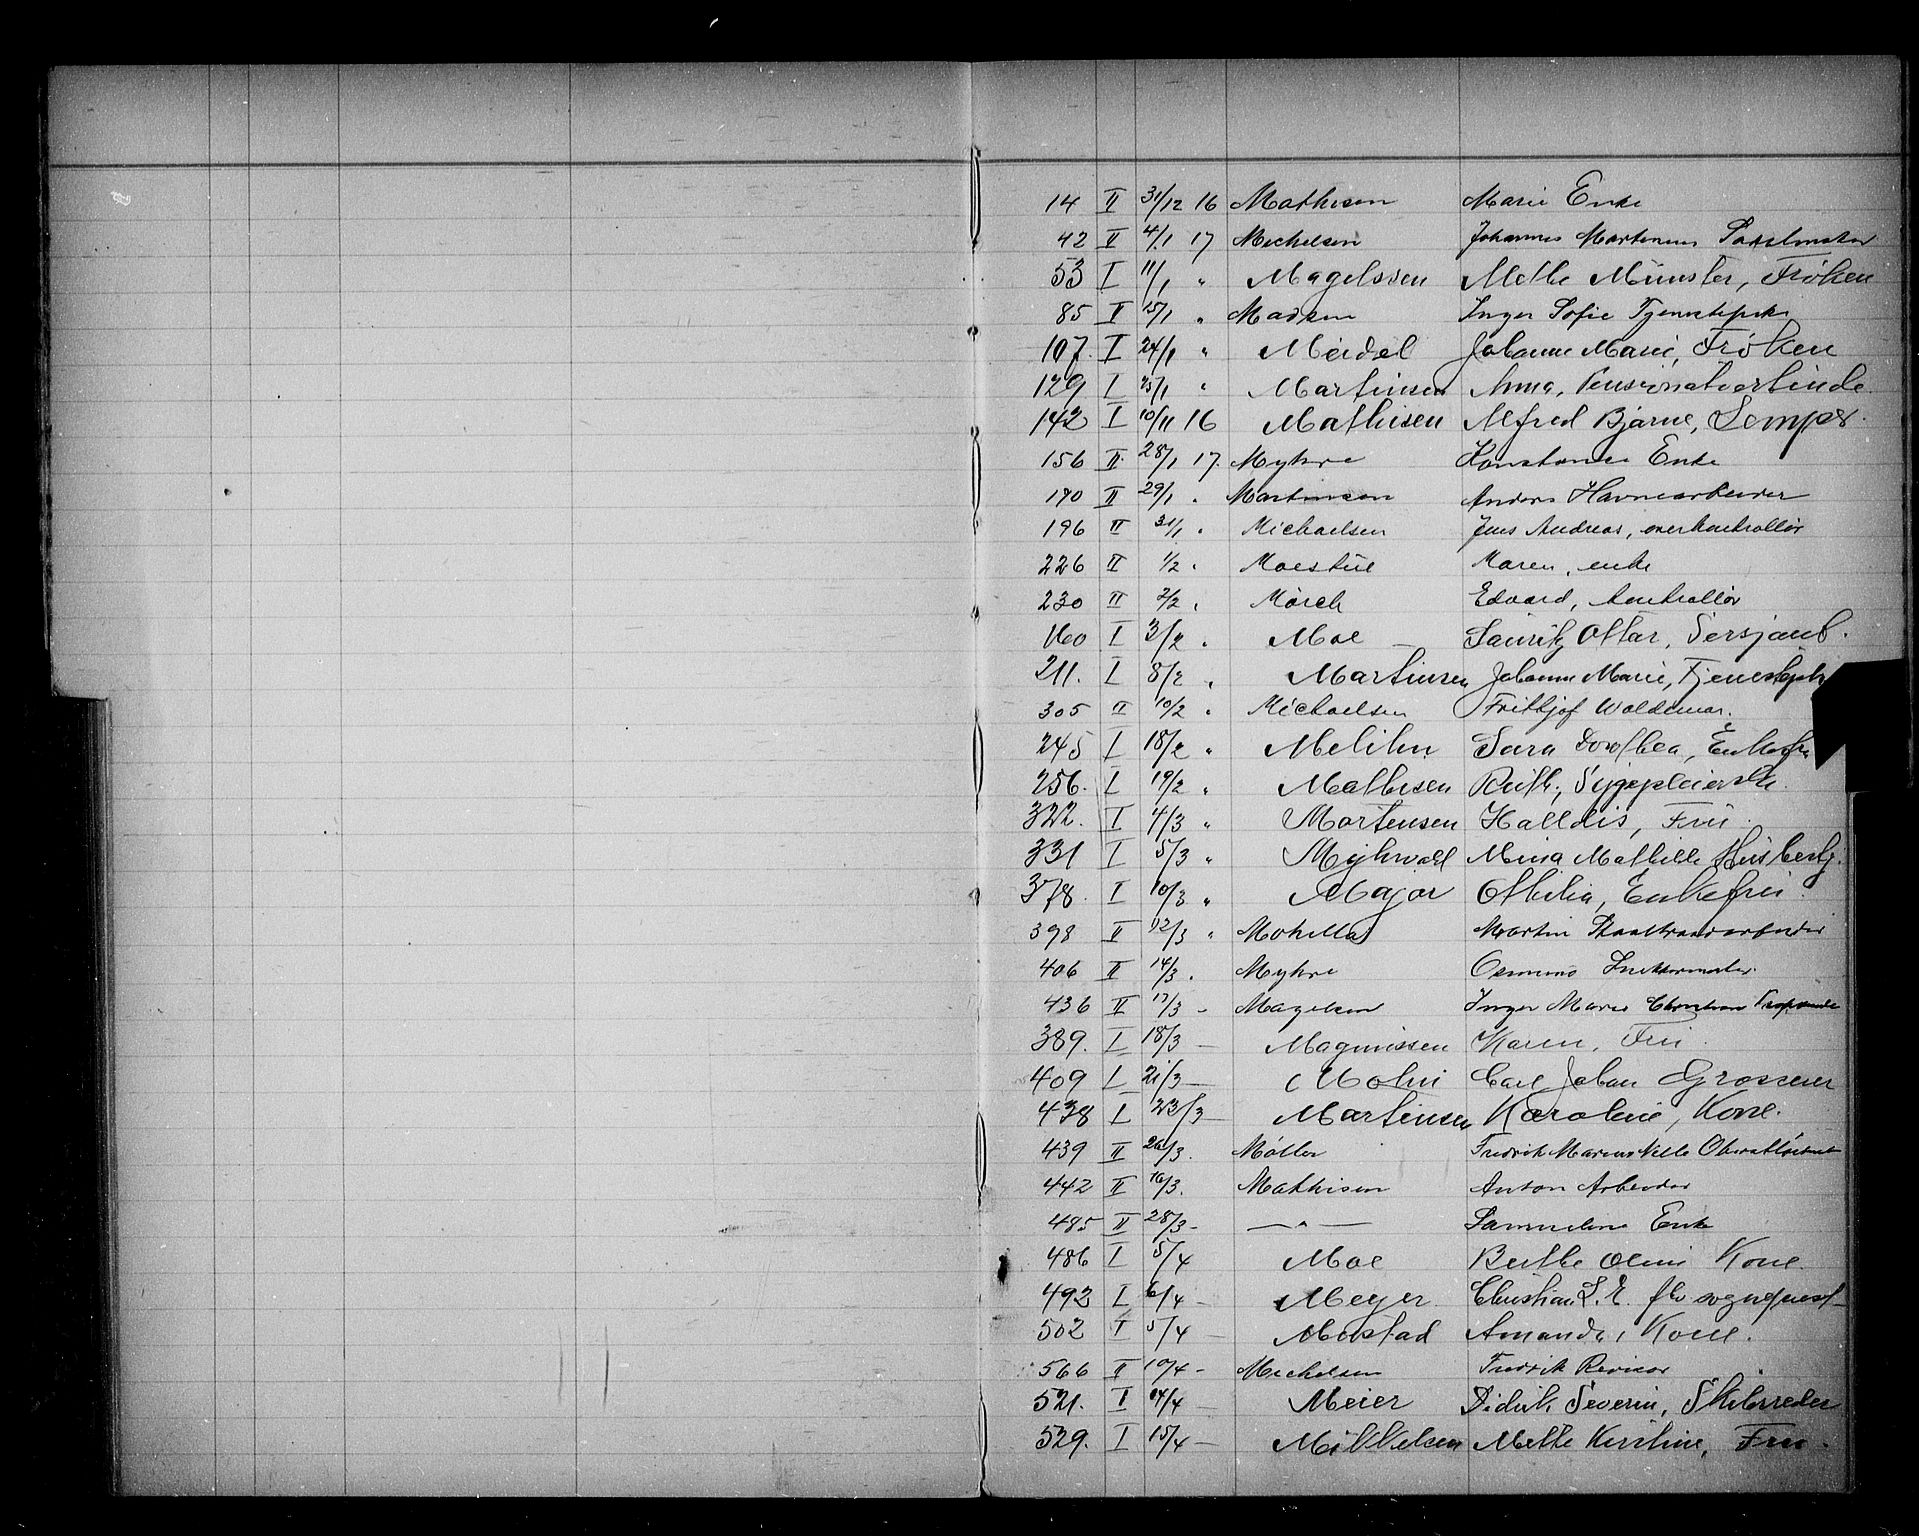 14 II 31/12 16 Mathisen Marie Enke
42 II 4/1 17 Michelsen Johannes Martinus
53 I 11/1 " Magelssen Mette Münster, Frøken
85 II 15/1 " Madsen Inger Sofie Tjenestepike
107. I 24/1 " Meidel Johanne Marie, Frøken
129 I 25/1 " Martinsen Anna, Pensionatvertinde
142 I 10/11 16 Mathisen Alfred Bjarne,
156 II 28/1 17. Myhre Konstance Enke
170 II 29/1 " Martinsen Anders Havnearbeider
196 II 31/1 " Michaelsen Jens Andreas, overkontrollør
226 II 1/2 " Moestue Maren, enke
230 II 2/2 " Mörch Edvard, kontrollør
160 I 3/2 " Moe Lauritz Ottar, Sersjant.
211. I 8/2 " Martinsen Johanne Marie, Tjenestepik
305 II 10/2 " Michaelsen Fritbjof Waldemar.
245 I 18/2 " Sara Dorothea, Enkefru
256. I 19/2 " Mathisen Ruth, Sygepleierske.
322. I 4/3 " Mortensen Halldis, Frü.
331 I 5/3 " Myhrvold Mina Mathilde Husbest.
378. I 10/3 " Major Othilia, Enkefru.
398 II 12/3 " Martin
406 II 14/3 " Myhre Osmund
436 II 17/3 - Magelsen Inger Marie
389. I 18/3 - Magnussen Karen, Frü.
409 I 21/3 - Mohn Carl Johan Grosserer
438 I 23/3 - Martinsen Karoline, Kone.
439 II 26/3. Møller Fredrik Marcus Oberstløitnant
442 II 16/3. Mathisen Anton Arbeider
485 II 28/3 - —"— Samueline Enke
486 I 5/4 Moe Berthe Oline Kone.
493 I 6/4 - Meyer Christian S. E. fhv sogneprest
502 I 5/4 - Mustad Amanda, Kone.
566 II 10/4 - Michelsen Fredrik Revisor
521. I 14/4 - Meier Didrik Severin, Skibsreder
529. I 15/4 - Mikkelsen Mette Kirstine, Fru.